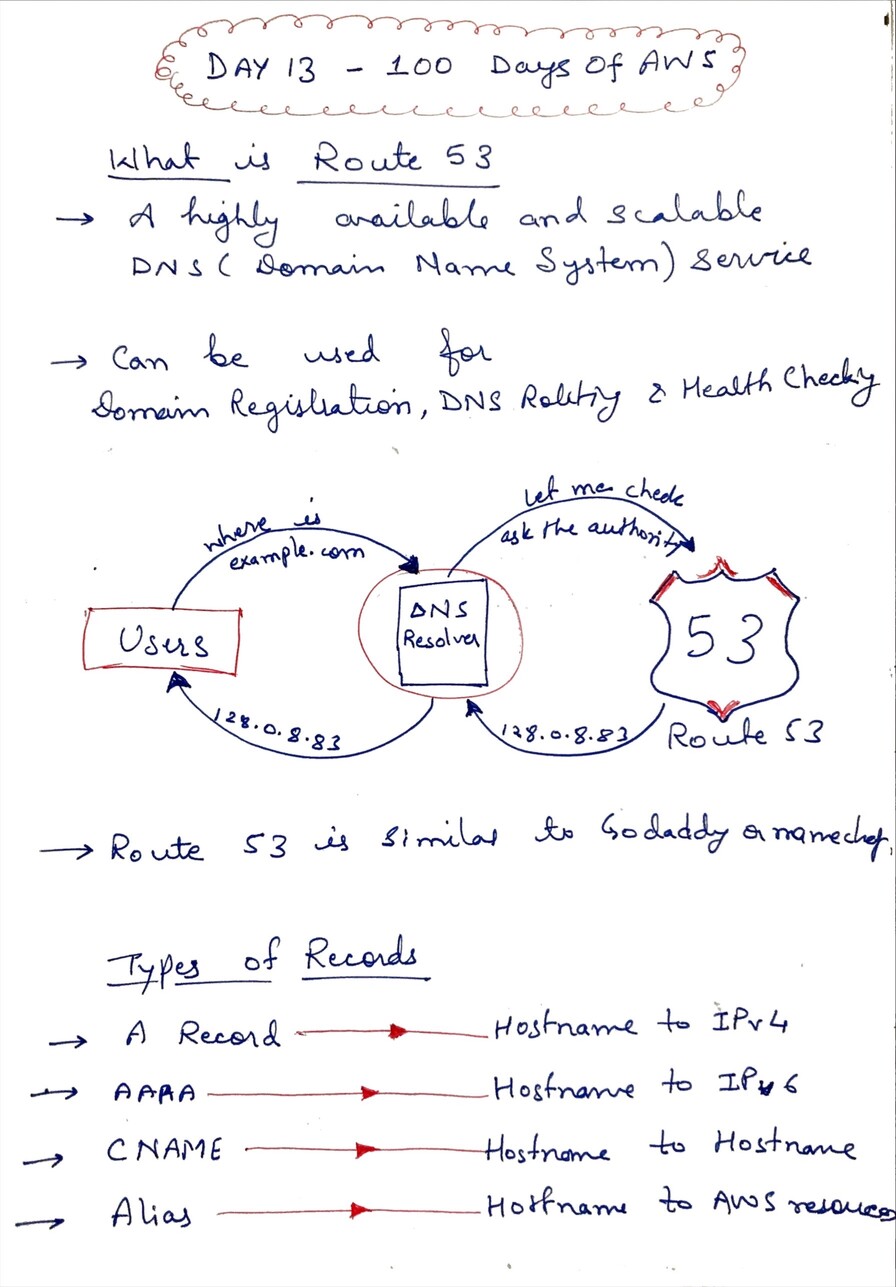 DAY 13 - 100 Days Of AWS
What is Route 53
→ A highly available and scalable
DNS ( Domain Name System) service
→ Can be used for
Domain Registration, DNS Routing & Health Checking
where is
example.com
Let me check
ask the authority
Users
DNS
Resolver
53
128.0.8.83
128.0.8.83
Route 53
→ Route 53 is similar to Godaddy or
Types of Records
→ A Record → Hostname to IPv4
→ AAAA → Hostname to IPv6
→ CNAME → Hostname to Hostname
→ Alias → Hostname to AWS